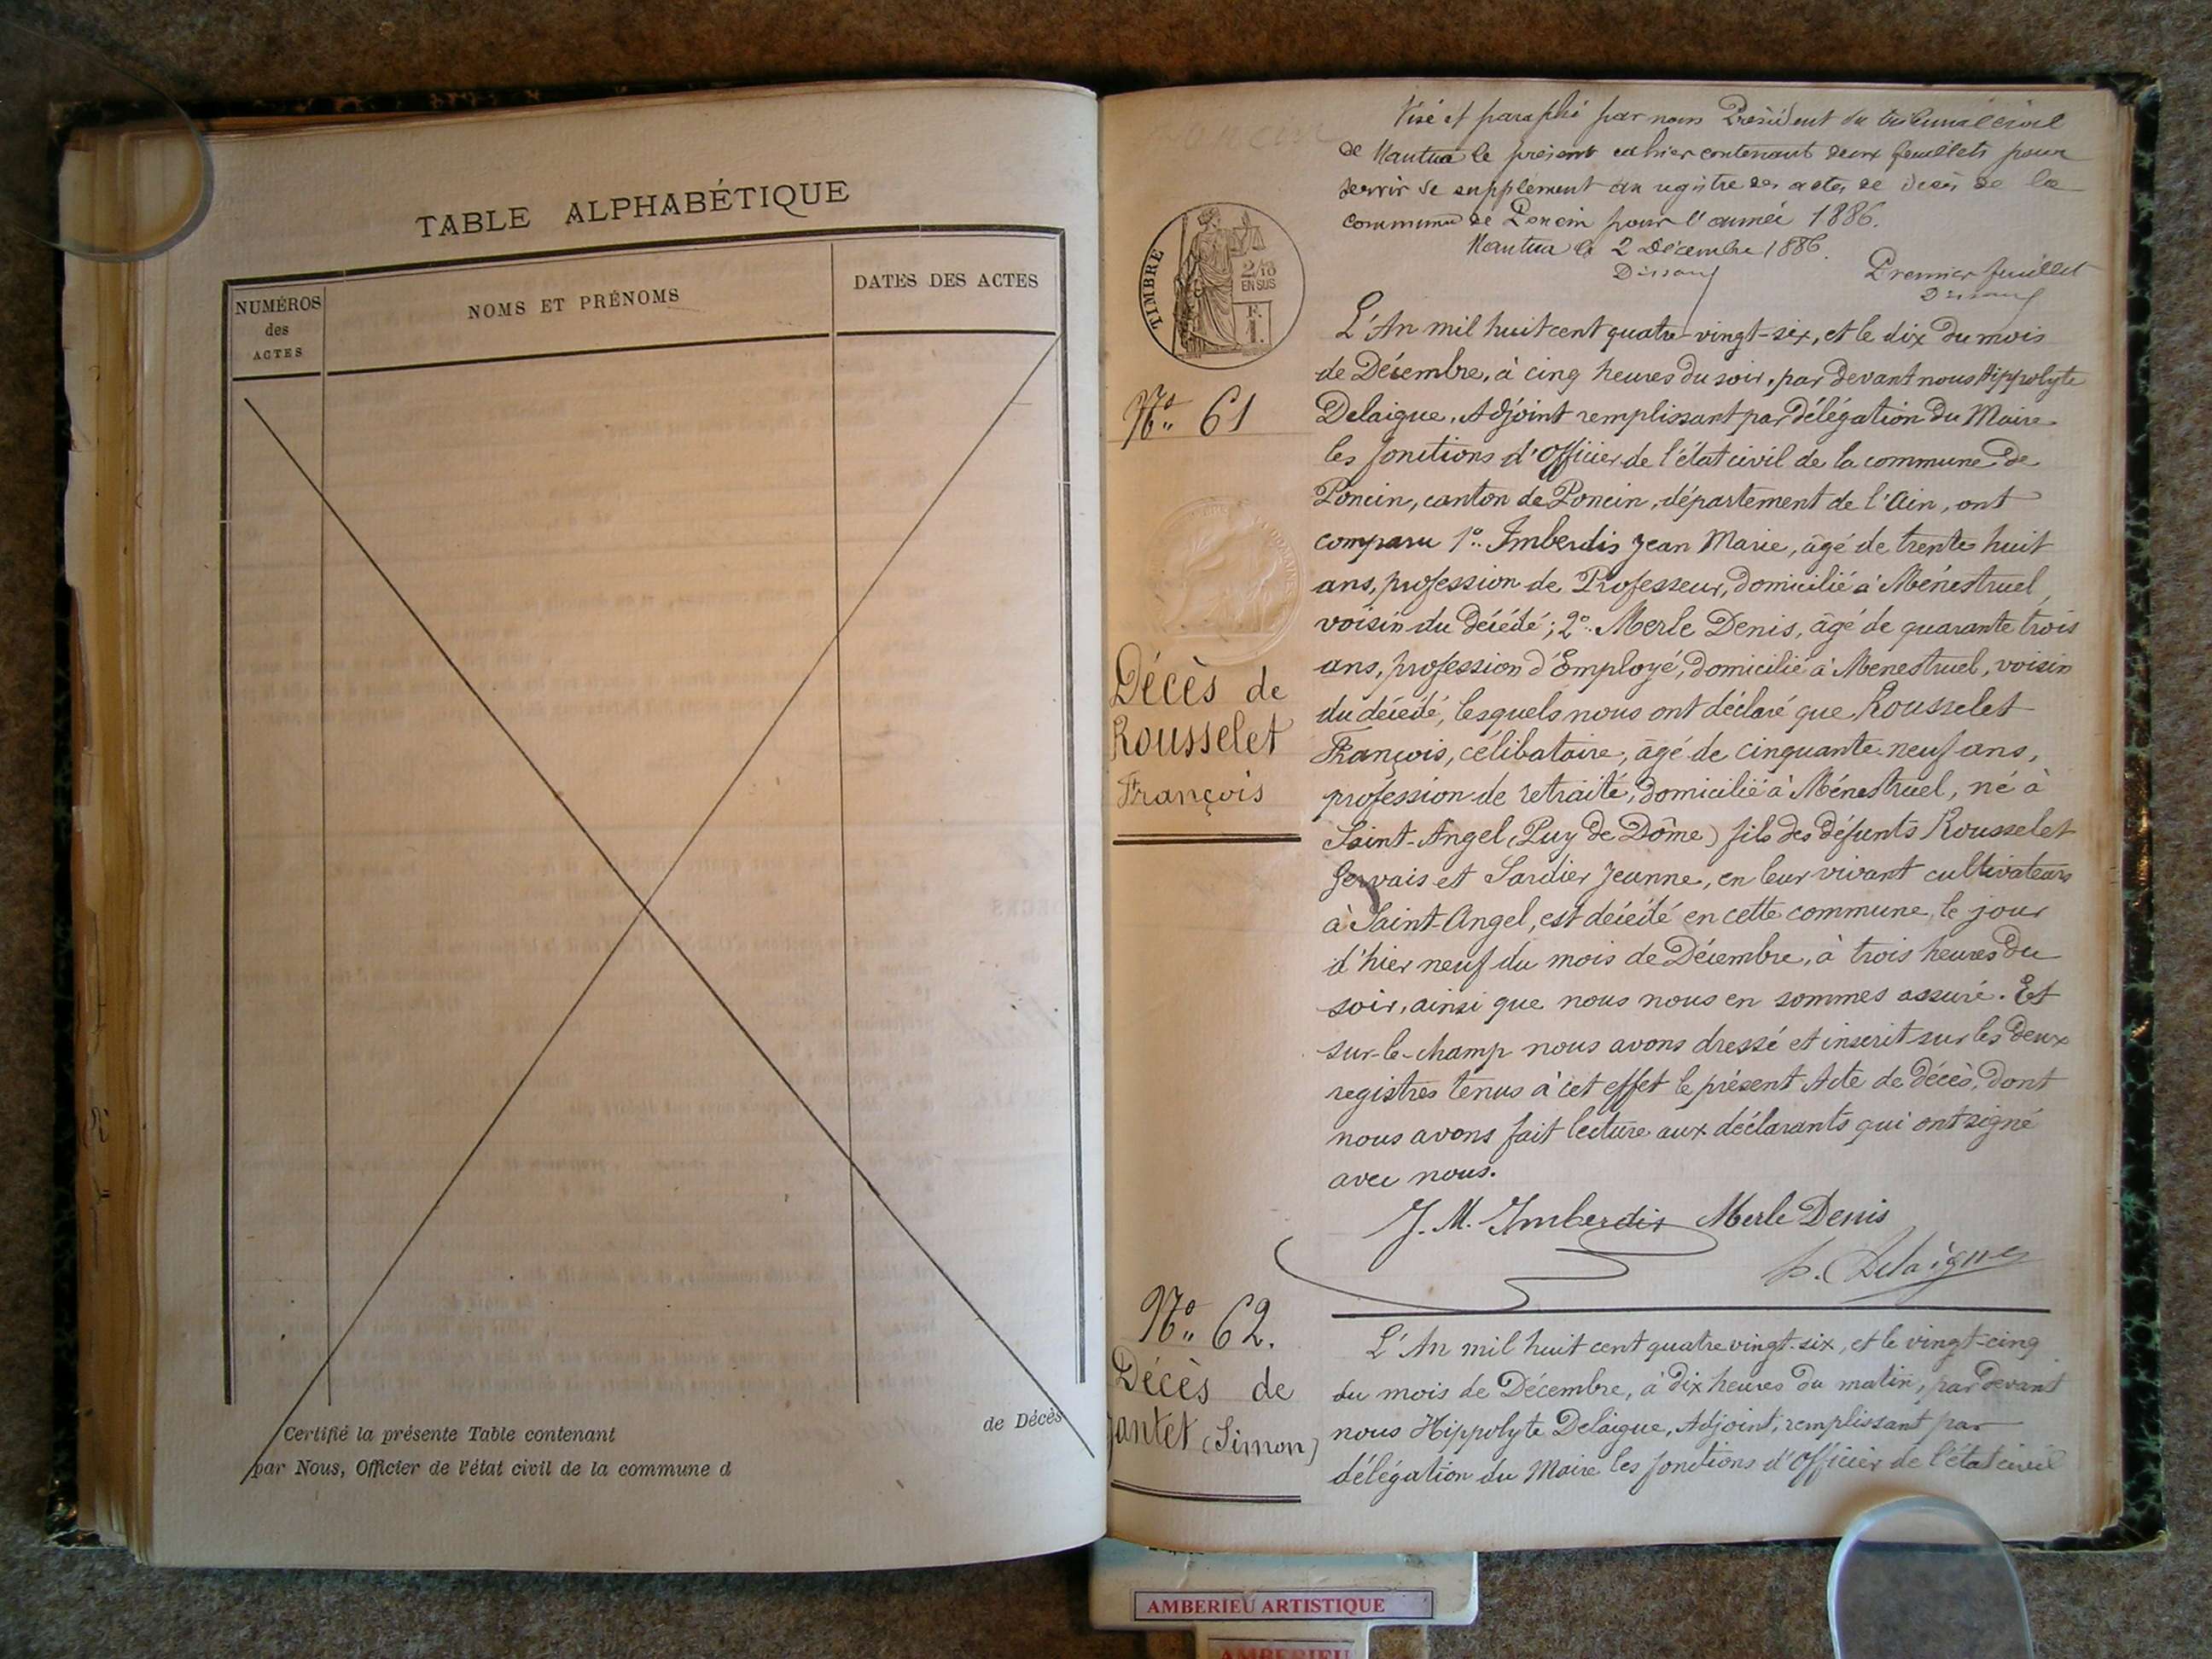 TABLE ALPHABÉTIQUE
NUMÉROS
des
ACTES
NOMS ET PRÉNOMS
DATES DES ACTES
Certifié la présente Table contenant
de Décès
par Nous, Officier de l'état civil de la commune d
Visé et paraphé par nous Président du tribunal civil
de Nantua le présent cahier contenant deux feuillets pour
servir de supplément au registre des actes de décès de la
commune de Poncin pour l'année 1886.
Nantua le 2 Décembre 1886.
Premier feuillet
TIMBRE
2/10
EN SUS
F.
1.
L'An mil huit cent quatre-vingt-six, et le dix du mois
de Décembre, à cinq heures du soir, par devant nous Hippolyte
No. 61
Delaigue, Adjoint remplissant par délégation du Maire
les fonctions d'Officier de l'état civil de la commune de
Poncin, canton de Poncin, département de l'Ain, ont
comparu 1o. Imberdis Jean Marie, âgé de trente huit
ans, profession de Professeur, domicilié à Ménestruel,
voisin du décédé; 2o. Merle Denis, âgé de quarante trois
ans, profession d'Employé, domicilié à Menestruel, voisin
Décès de
Rousselet
François
du décédé, lesquels nous ont déclaré que Rousselet
François, célibataire, âgé de cinquante-neuf ans,
profession de retraité, domicilié à Ménestruel, né à
Saint-Angel (Puy de Dôme) fils des défunts Rousselet
Gervais et Sardier Jeanne, en leur vivant cultivateurs
à Saint-Angel, est décédé en cette commune, le jour
d'hier neuf du mois de Décembre, à trois heures du
soir, ainsi que nous nous en sommes assuré. Et
sur-le-champ nous avons dressé et inscrit sur les deux
registres tenus à cet effet le présent Acte de décès, dont
nous avons fait lecture aux déclarants qui ont signé
avec nous.
J. M. Imberdis Merle Denis
h. Delaigue
No. 62.
Décès de
Jantet (Simon)
L'An mil huit cent quatre vingt-six, et le vingt-cinq
du mois de Décembre, à dix heures du matin, par devant
nous Hippolyte Delaigue, Adjoint, remplissant par
délégation du Maire les fonctions d'Officier de l'état civil
AMBERIEU ARTISTIQUE
AMBERIEU